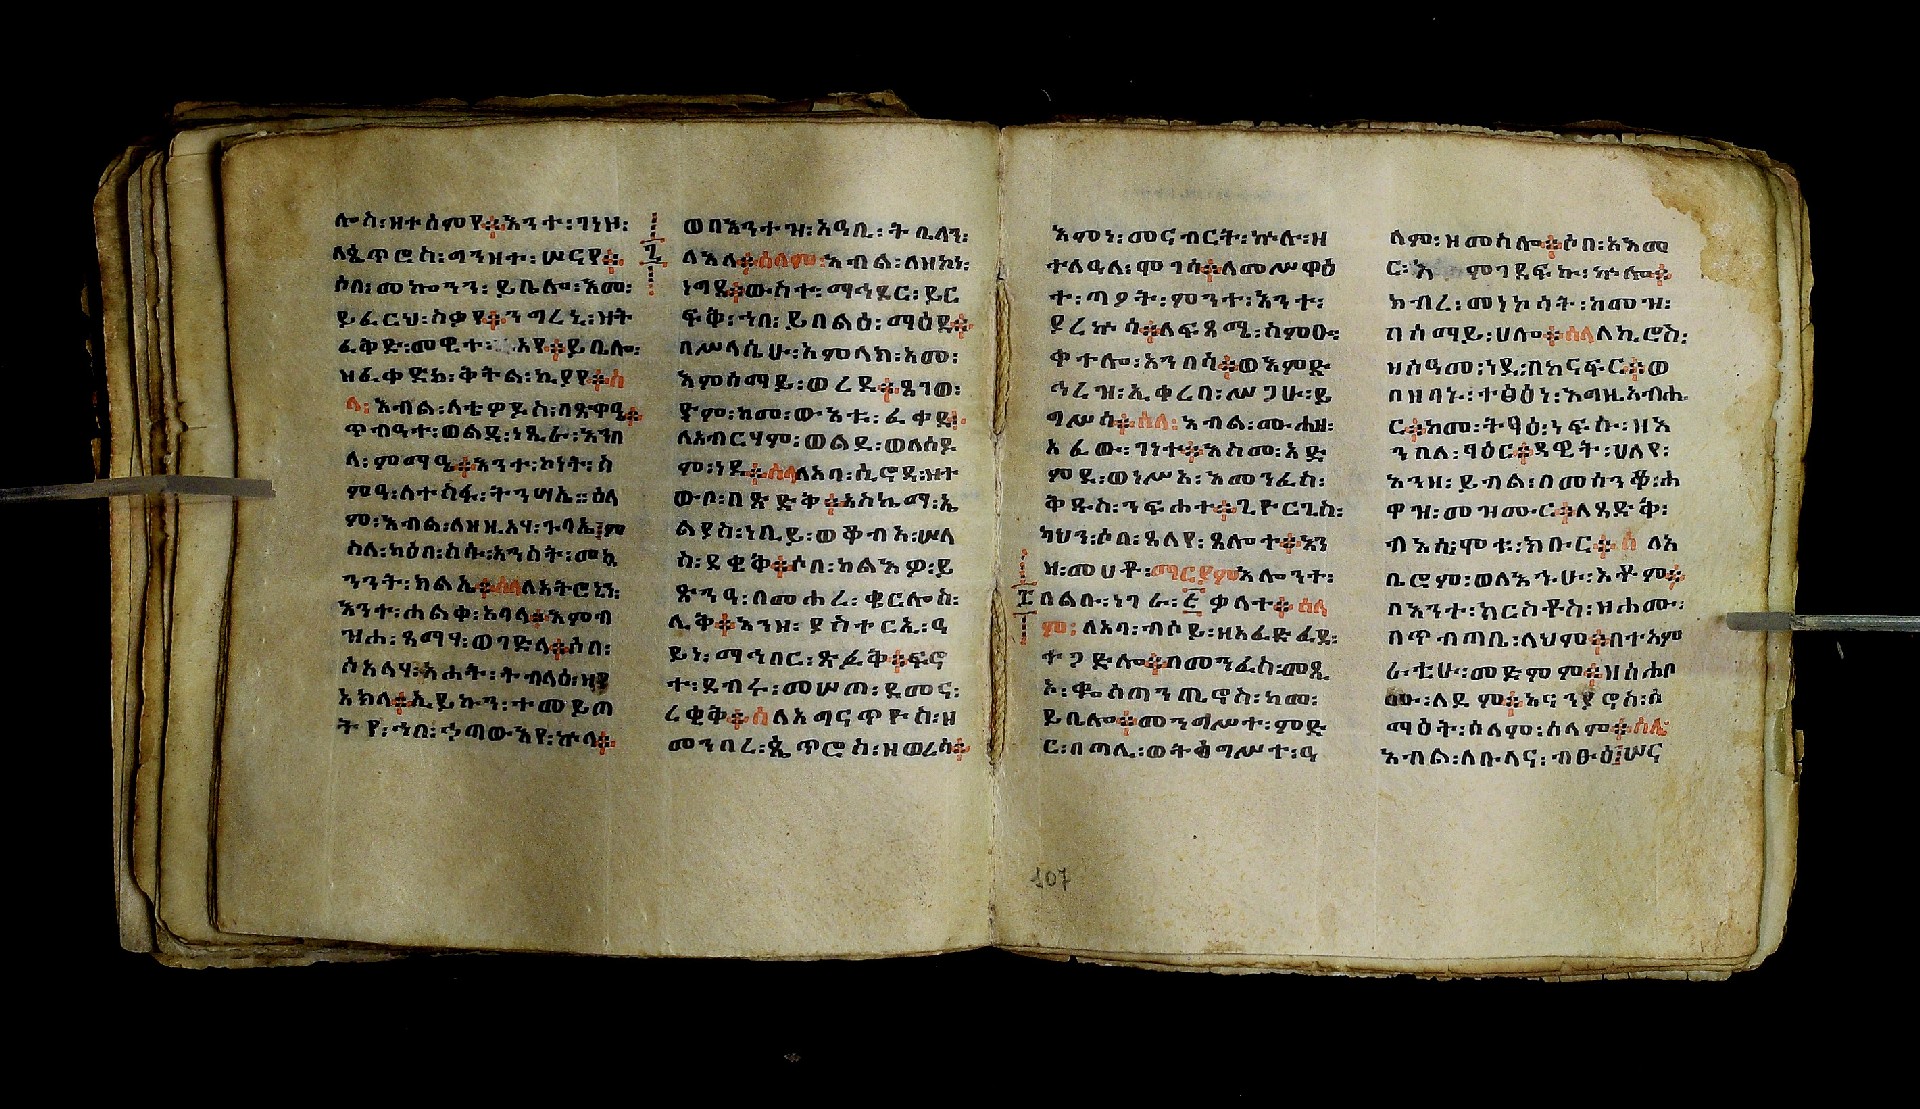 ሎስ፡ዘተሰምየ፨አንተ፡ገነዞ፡
ለጴጥሮስ፡ግንዘተ፡ሠናየ፨
ሶበ፡መኰንን፡ይቤሎ፡እመ፡
ይፈርህ፡ስቃየ፨ንግረኒ፡ዝት
ፈቅድ፡መዊተ፡ አየ፨ይቤሎ፡
ዝፈቀድከ፡ቅትል፡ኪያየ፨ሰ
ላ፡እብል፡ለቴዎይስ፡በጽዋዔ፨
ጥብዓተ፡ወልዱ፡ነጺራ፡እንበ
ለ፡ምማዔ፨አንተ፡ኮነት፡ስ
ምዓ፡ለተስፋ፡ትንሣኤ።ሰላ
ም፡እብል፡ለዝዚአሃ፡ጉባኤ፤ም
ስለ፡ካዕበ፡ስሱ፡አንስት፡መኳ
ንንት፡ክልኤ፨ሰላለአትሮኒን፡
አንተ፡ሐልቀ፡አባላ፨እምብ
ዝሐ፡ጻማሃ፡ወገድላ፨ሶበ፡
ሰአለሃ፡አሐት፡ትብላዕ፡ዘያ
አክላ፨ኢይኩን፡ተመይጠ
ትየ፡ኀበ፡ኃጣውእየ፡ኵላ፨
ወበእንተዝ፡አዓቢ፡ትቤላን፡
ለእለ፨ሰላም፡እብል፡ለዘኮነ፡
ነግደ፨ውስተ፡ማኅደር፡ይር
ፍቅ፡ኀበ፡ይበልዕ፡ማዕደ፨
በሥላሴሁ፡አምላክ፡አመ፡
እምሰማይ፡ወረደ፨ጼገወ፡
ዮም፡ከመ፡ውእቱ፡ፈቀደ፨
ለአብርሃም፡ወልደ፡ወለሰዶ
ም፡ነደ፨ሰላለአባ፡ሲሮዳ፡ዝተ
ውቦ፡በጽድቅ፨አስኬማ፡ኤ
ልያስ፡ነቢይ፡ወቆብአ፡ሠላ
ስ፡ደቂቅ፨ሶበ፡ከልእዎ፡ይ
ጽንዓ፡በመሐረ፡ቄርሎስ፡
ሊቅ፨እንዘ፡ያስተርኢ፡ዓ
ይነ፡ማኅበር፡ጽፈቅ፨ፍኖ
ተ፡ደብሩ፡መሠጠ፡ደመና፡
ረቂቅ፨ሰለአግናጥዮስ፡ዘ
መንበረ፡ጴጥሮስ፡ዘወረሰ፨
እምነ፡መናብርት፡ኵሉ፡ዘ
ተለዓለ፡ሞገሰ፨ለመሥዋዕ
ተ፡ጣዖት፡ምንተ፡እንተ፡
ያረኵሳ፨ለፍጻሜ፡ስምዑ፡
ቀተሎ፡አንበሳ፨ወእምድ
ኅረዝ፡ኢቀረበ፡ሥጋሁ፡ይ
ግሥሳ፨ሰለ፡እብል፡ሙሐዘ፡
አፈው፡ገነተ፨እስመ፡አድ
ምደ፡ወነሥአ፡እመንፈስ፡
ቅዱስ፡ንፍሐተ፨ጊዮርጊስ፡
ካህን፡ሶበ፡ጸለየ፡ጸሎተ፨እን
ዘ፡መሀቶ፡ማርያምእሎንተ፡
በልቡ፡ነገራ፡፭ቃላተ፨ሰላ
ም፡ለአባ፡ብሶይ፡ዘአፈድፈደ፡
ተጋድሎ፨በመንፈስ፡መጺ
አ፡ቈስጠንጢኖስ፡ከመ፡
ይቤሎ፨መንግሥተ፡ምድ
ር፡በጣሊ፡ወትቁግሥተ፡ዓ
ለም፡ዘመሰሎ፨ሶበ፡አእመ
ር፡እ ምገደፍኩ፡ኵሎ፨
ክብረ፡መነኮሳት፡ከመዝ፡
በሰማይ፡ሀሎ፨ሰላለኪሮስ፡
ዘሰዓመ፡ነደ፡በከናፍር፨ወ
በዝባኑ፡ተፅዕነ፡እግዚአብሔ
ር፨ከመ፡ትፃዕ፡ነፍሱ፡ዘእ
ንበለ፡ፃዕር፨ዳዊት፡ሀለየ፡
እንዘ፡ይብል፡በመሰንቆ፡ሐ
ዋዝ፡መዝሙር፨ለጻድቅ፡
ብእሲ፡ሞቱ፡ክቡር፨ሰ ለአ
ቤሮም፡ወለእኁሁ፡አቶም፨
በእንተ፡ክርስቶስ፡ዝሐሙ፡
በጥብጣቤ፡ለህም፨በተአም
ራቲሁ፡መድምም፨ዘሰሐቦ
ሙ፡ለደም፨እናንያኖስ፡ሰ
ማዕት፡ሰላም፡ሰላም፨ሰሌ
እብል፡ለቡላና፡ብፁዕ፤ሠና
107